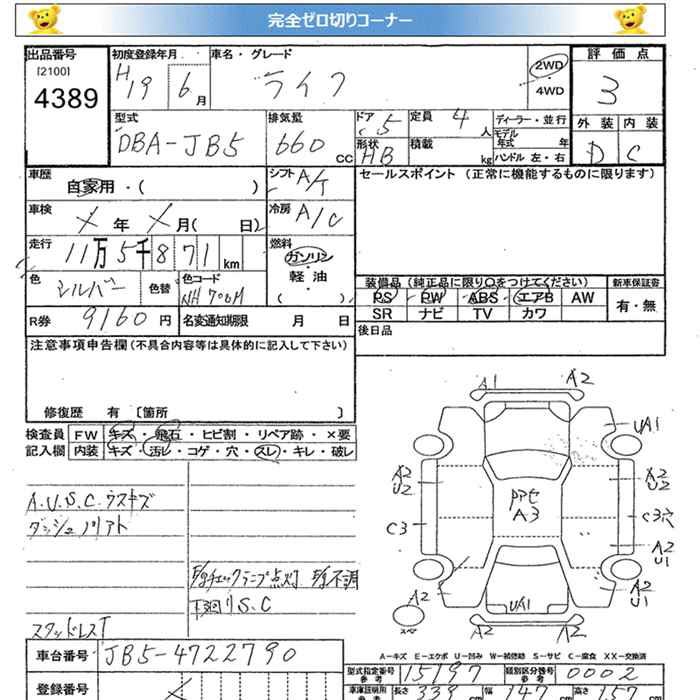 完全ゼロ切りコーナー
出品番号 [2100] 4389
初度登録年月 H19 6月
車名・グレード ライフ
2WD・4WD
評価点 3
外装 D 内装 C
型式 DBA-JB5
排気量 660 CC
ドア 5
形状 HB
定員 4人
積載 kg
ディーラー・並行
モデル年式 年
ハンドル 左・右
車歴 自家用・( )
シフト A/T
セールスポイント (正常に機能するものに限ります)
車検 メ年 メ月( 日)
冷房 A/C
走行 11万5千871km
燃料 ガソリン・軽・油 ( )
色 シルバー 色替
色コード NH700M
装備品 (純正品に限り○をつけてください) 新車保証書
PS PW ABS エアB AW 有・無
SR ナビ TV カワ
R券 9160円
名変通知期限 月 日
後日品
注意事項申告欄(不具合内容等は具体的に記入して下さい)
修復歴 有 〔箇所 〕
検査員記入欄
FW キズ・飛石・ヒビ割・リペア跡・×要
内装 キズ・汚レ・コゲ・穴・スレ・キレ・破レ
A.U.S.C.ウスキズ
ダッシュノリアト
E/gチェックランプ点灯 E/g不調
下廻りS.C
スタッドレスT
A1 A2
UA1
A2 U2
A2 U2
C3
C3穴
A3
A2 U1
A2
A2 U1
UA1
A2 A2
スペア
A-キズ E-エクボ U-凹み W-補修跡 S-サビ C-腐食 XX-交換済
車台番号 JB5-4722790
型式指定番号 参考 15197
類別区分番号 参考 0002
登録番号 メ
車庫証明用 参考 長さ 339cm 幅 147cm 高さ 157